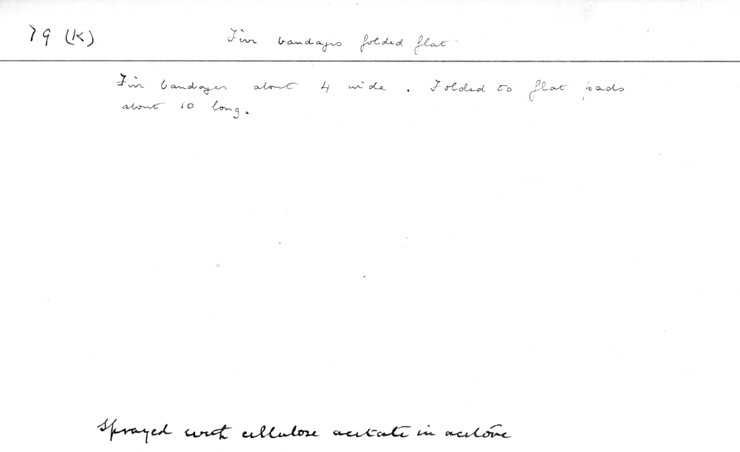 79 (K)
bandages folded flat
bandages about 4 wide. Folded to flat pads
about 10 long.
Sprayed with cellulose acetate in acetone